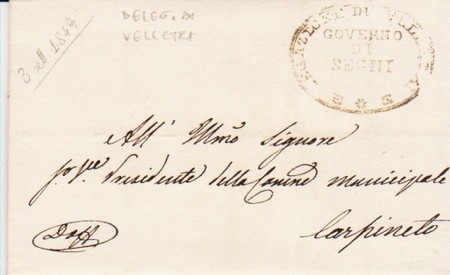 3 sett 1849
DELEG. DI
VELLETRI
LEGAZIONE DI VELLETRI
GOVERNO
DI
SEGNI
All' Illmo Signore
Presidente della Comme Municipale
Carpineto